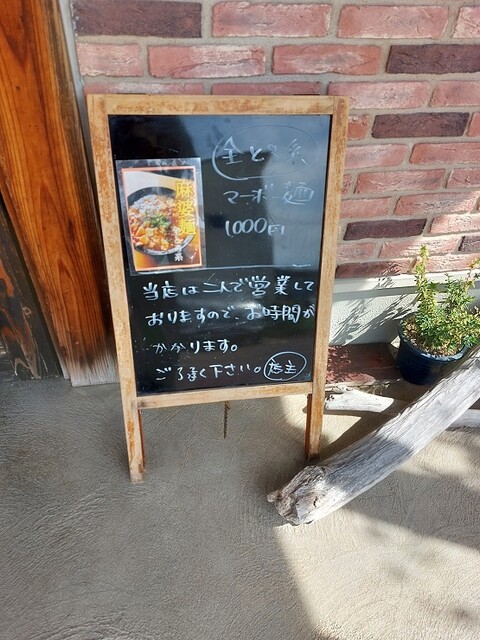 金と炎
マーボー麺
1,000円
麻婆麺
当店は二人で営業して
おりますので、お時間が
かかります。
ご了承く下さい。店主